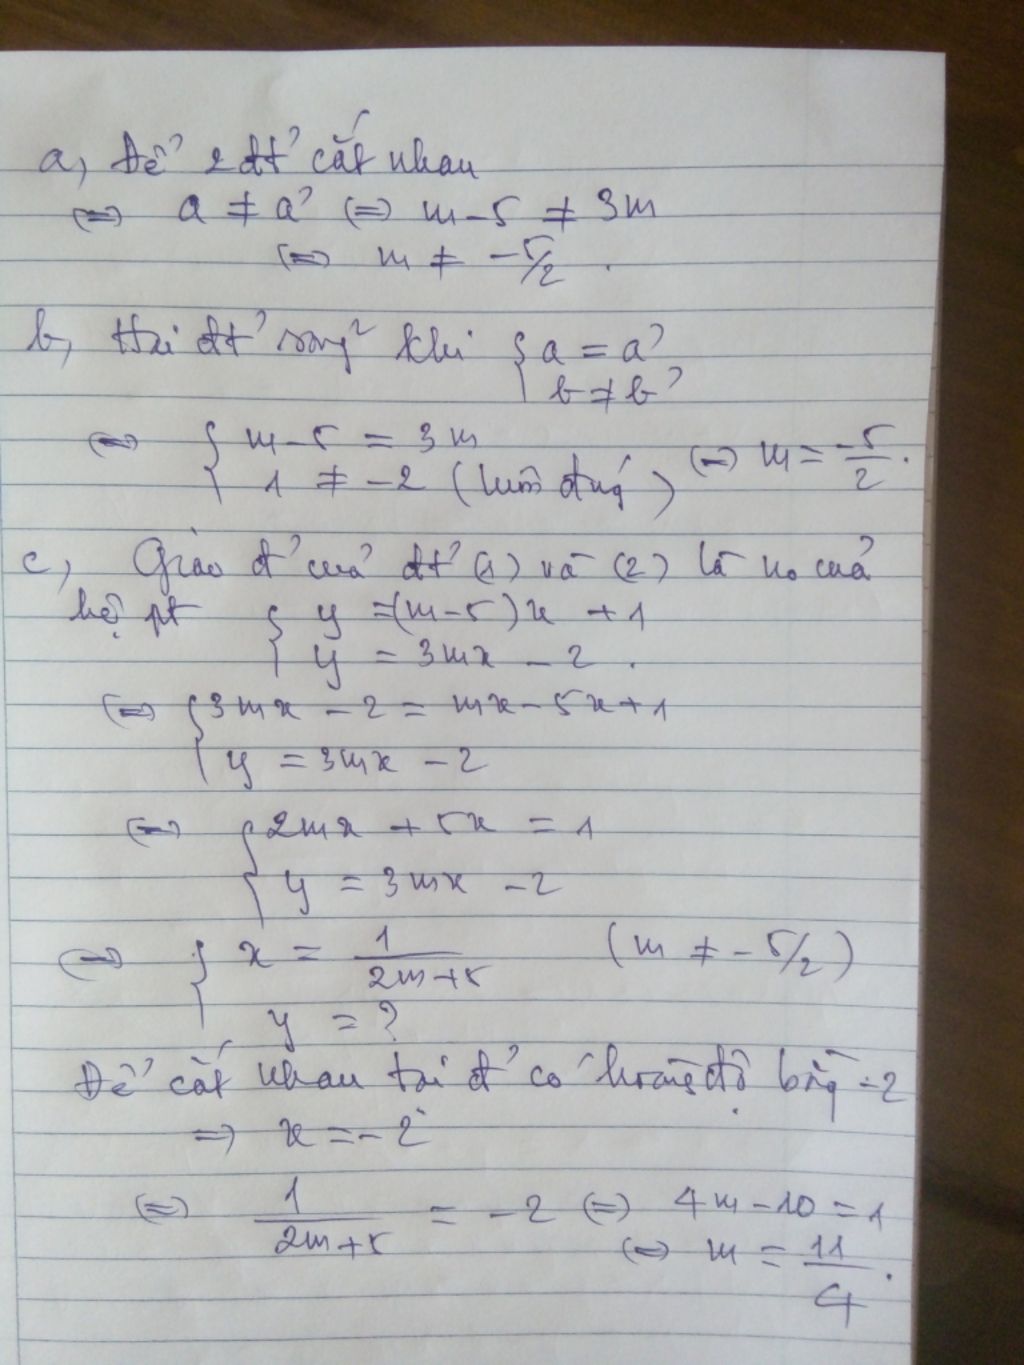 a, Để 2 đt' cắt nhau
<=> a ≠ a' <=> m-5 ≠ 3m
<=> m ≠ -5/2 .
b, Hai đt' song² khi { a = a'
b ≠ b'
<=> { m-5 = 3m
1 ≠ -2 (luôn đúng) <=> m = -5/2 .
c, Giao đ' của đt' (1) và (2) là no của
hệ pt { y =(m-5)x +1
y = 3mx - 2 .
<=> { 3mx - 2 = mx - 5x + 1
y = 3mx - 2
<=> { 2mx + 5x = 1
y = 3mx - 2
<=> { x = 1/(2m+5) (m ≠ -5/2)
y = ?
Để cắt nhau tại đ' có hoành độ bằng -2
=> x = -2
<=> 1/(2m+5) = -2 <=> 4m - 10 = 1
<=> m = 11/4 .